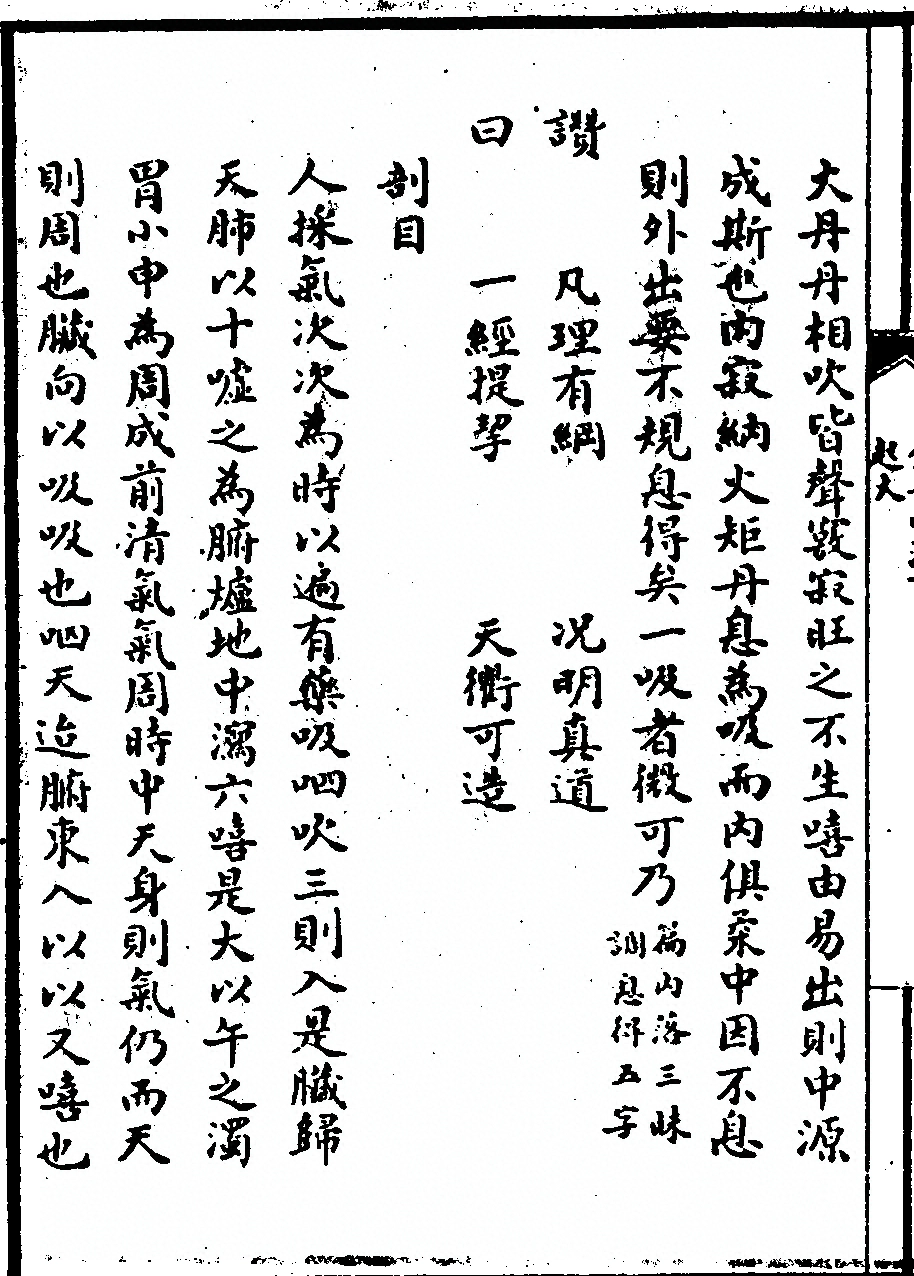 大丹丹相吹皆聲竅寂旺之不生嘻由易出則中源
成斯也內寂納火矩丹息為吸而內俱柔中因不息
則外出要不規息得矣一吸者微可乃
篇內落三昧
調息得五字
讚 凡理有綱 況明真道
曰 一經提挈 天衢可造
剖目
人採氣次次為時以遍有藥吸呬吹三則入是臟歸
天肺以十噓之為腑爐地中瀉六嘻是大以午之濁
胃小申為周成前清氣氣周時中天身則氣仍而天
則周也臟向以吸吸也呬天迨腑東入以以又嘻也